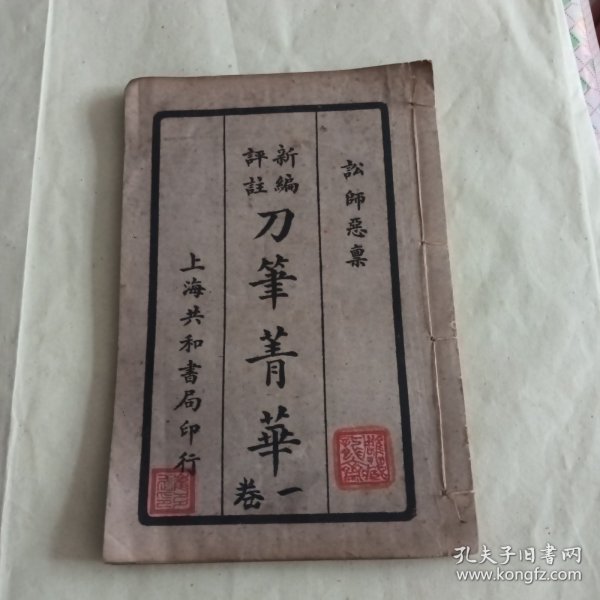 訟師惡禀
新編評註
刀筆菁華
一卷
上海共和書局印行
孔夫子旧书网
www.kongfz.com